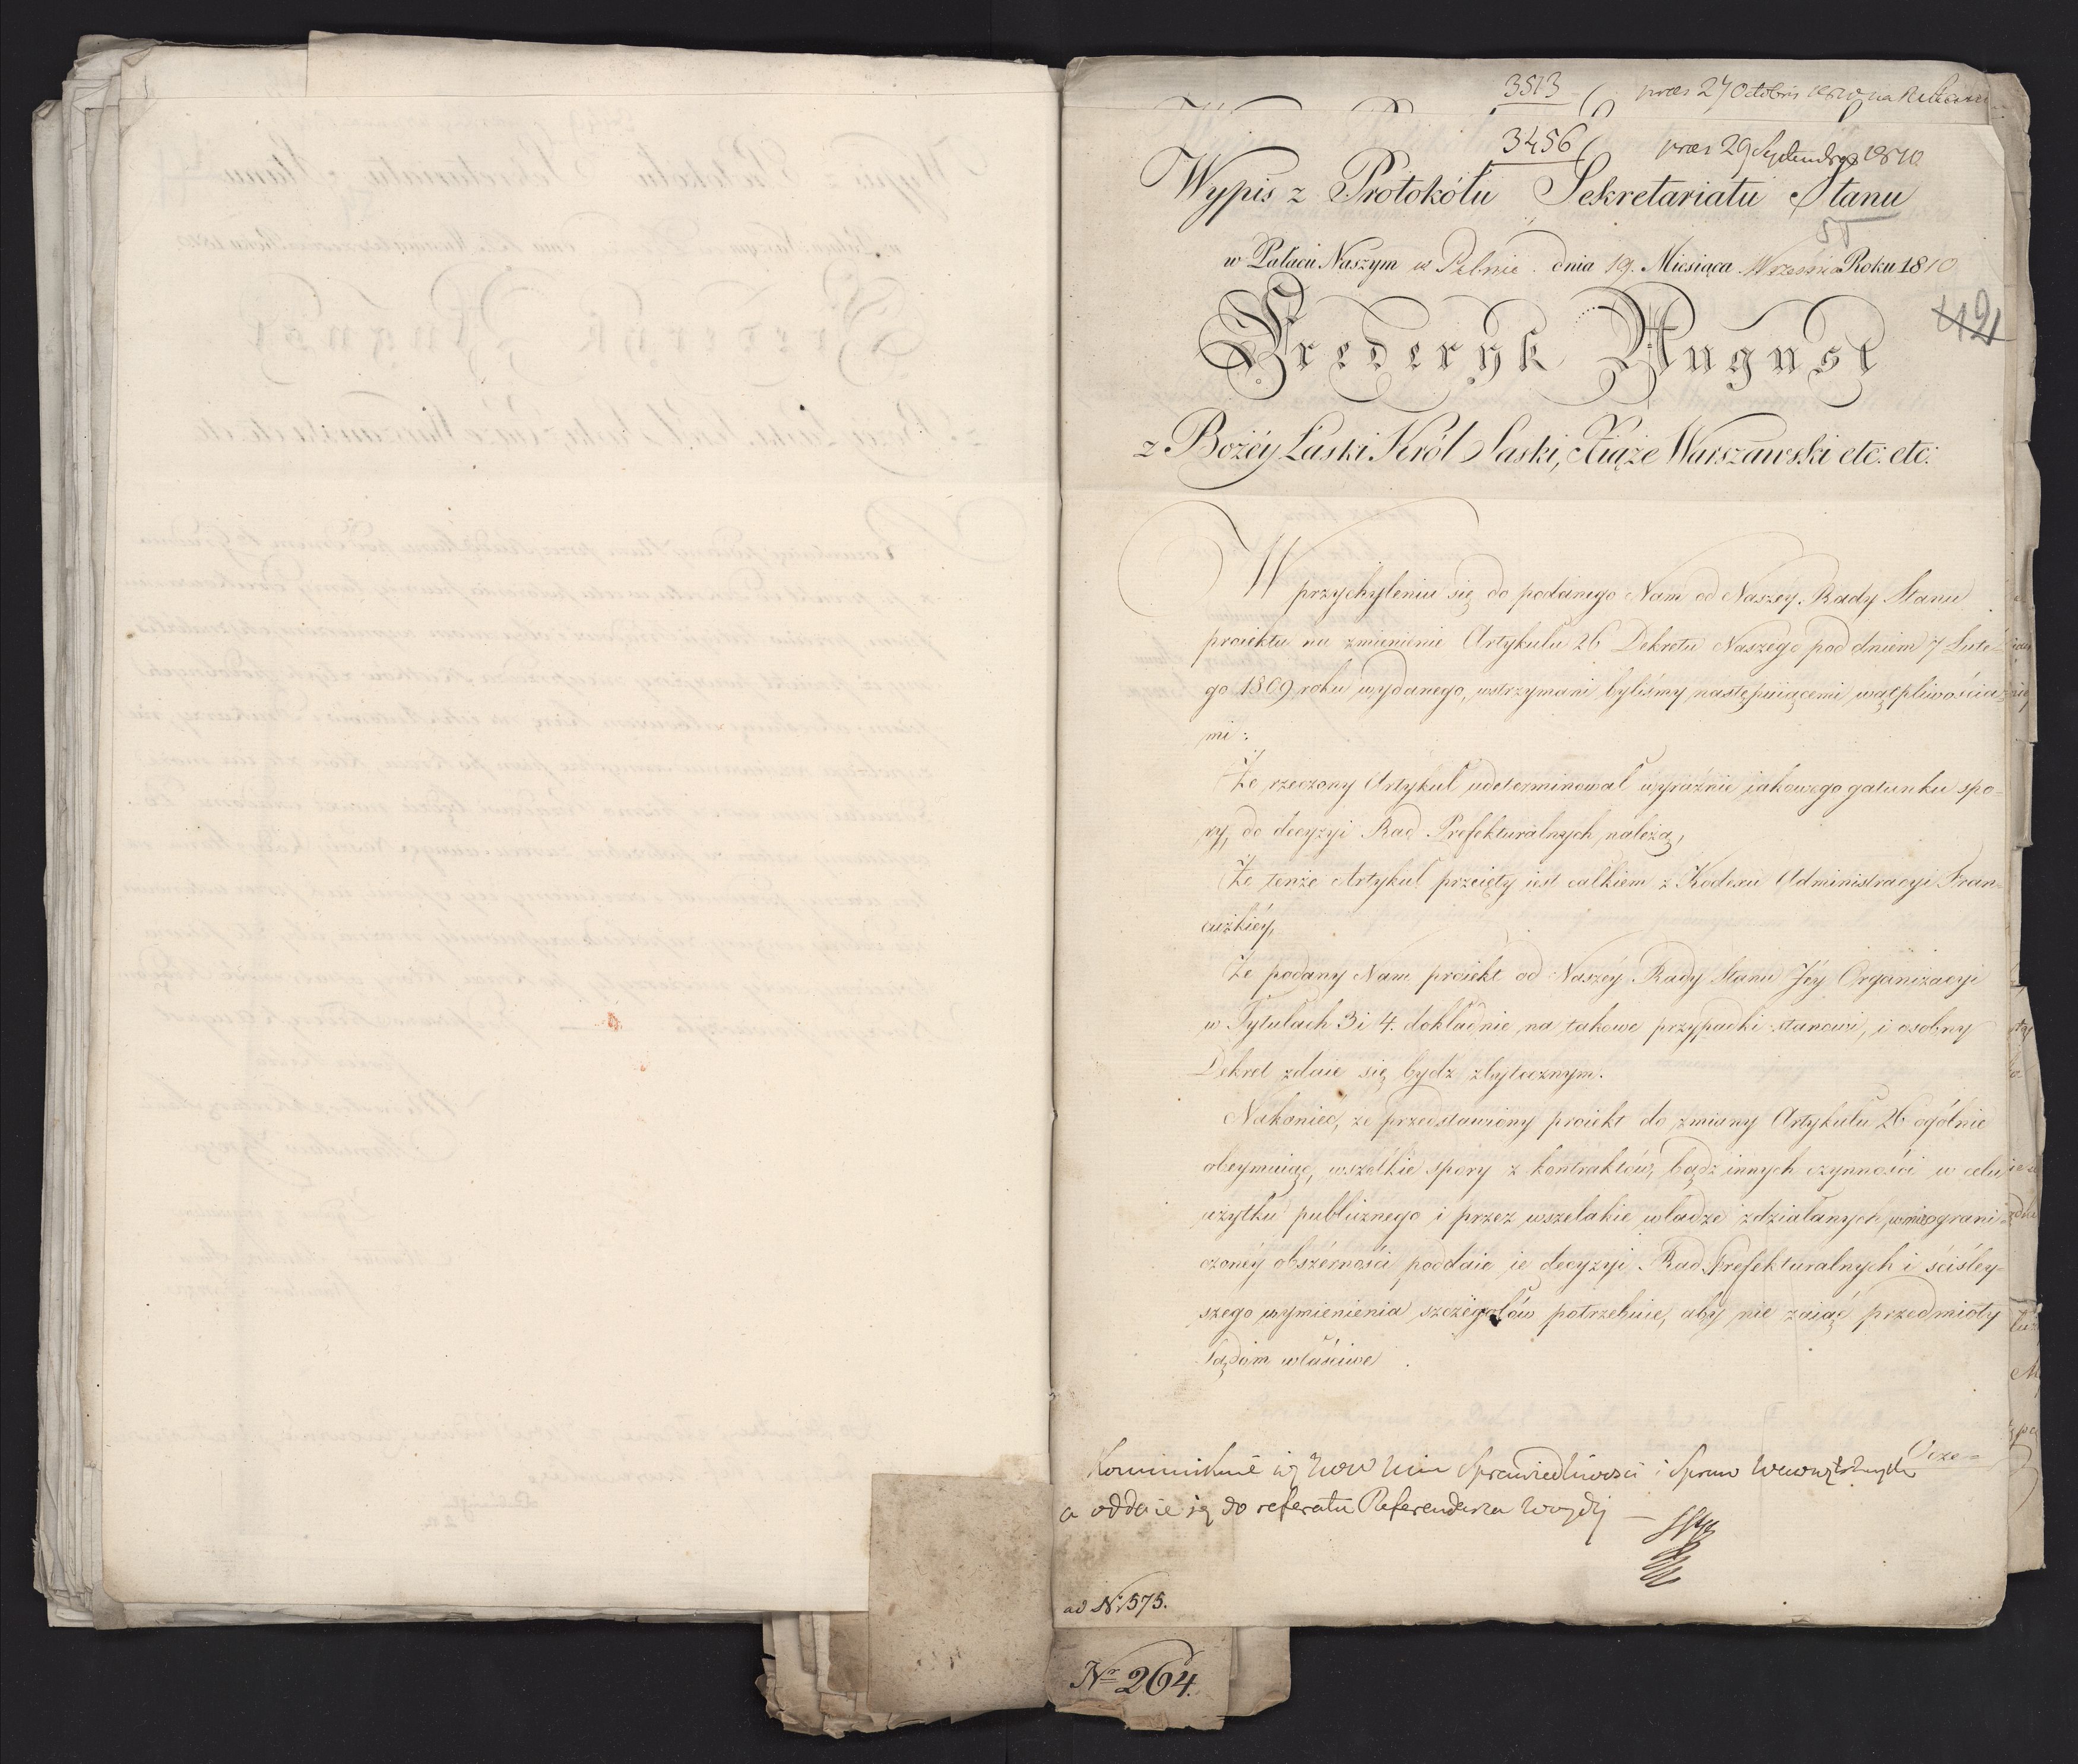 3513
præs 27 Octobris 1810
3456
præs 29 Septembris 1810
Wypis z Protokółu Sekretariatu Stanu
55
w Pałacu Naszym w Pilnic dnia 19. Miesiąca Września Roku 1810
42
Frederyk August
z Bożéy Łaski Król Saski, Xiąże Warszawski etc. etc:
W przychyleniu się do podanego Nam od Naszéy Rady Stanu
proiektu na zmienienie Artykułu 26 Dekretu Naszego pod dniem 7 Lute-
go 1809 roku wydanego, wstrzymani byliśmy następuiącemi wątpliwościa-
mi :
Że rzeczony Artykuł udeterminował wyraźnie iakowego gatunku spo-
ry, do decyzyi Rad Prefekturalnych należą,
Że tenże Artykuł przeięty iest całkiem z Kodexu Administracyi Fran-
cuzkiéy,
Że podany Nam proiekt od Naszéy Rady Stanu Jéy Organizacyi
w Tytułach 3 i 4. dokładnie na takowe przypadki stanowi, i osobny
Dekret zdaie się bydz zbytecznym.
Nakoniec, że przedstawiony proiekt do zmiany Artykułu 26 ogólnie
obeymuiąc, wszelkie spory z kontraktów, bądz innych czynności w celu
użytku publicznego i przez wszelakie władze zdziałanych, w nieograni-
czonéy obszérności poddaie ie decyzyi Rad Prefekturalnych i ściśley-
szego wymienienia szczegółów potrzebuie, aby nie zaiąć przedmioty
Sądom właściwe.
Ocze-
Kommunikuie się Sprawiedliwości i Spraw Wewnętrznych
a oddaie się do referatu Referendarza Woydy —
ad N. 1575.
Nr. 264.